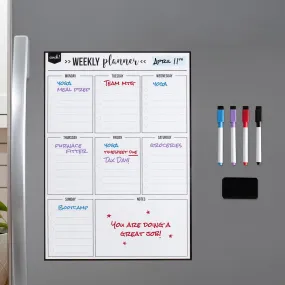 WEEKLY planner
April 11TH
MONDAY
TUESDAY
WEDNESDAY
YOGA
MEAL PREP
TEAM MTG
YOGA
THURSDAY
FRIDAY
SATURDAY
FURNACE
FITTER
YOGA
TIMESHEET DUE
TAX DAY
GROCERIES
SUNDAY
NOTES
BOOTCAMP
YOU ARE DOING A
GREAT JOB!